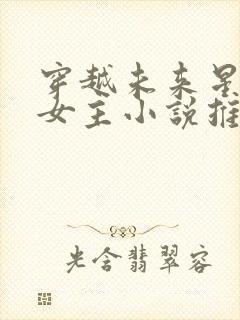 穿越未来星
女主小说推
光含翡翠容